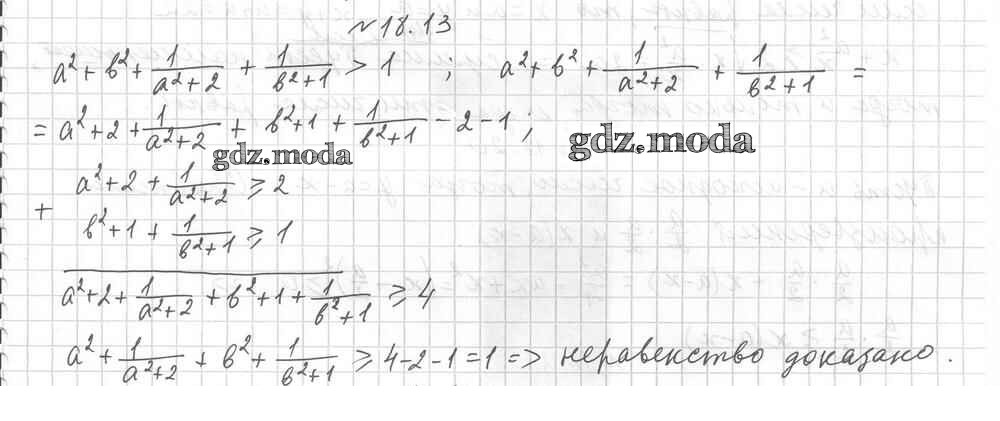 № 18.13
a² + b² + 1/(a²+2) + 1/(b²+1) > 1 ; a² + b² + 1/(a²+2) + 1/(b²+1) =
= a² + 2 + 1/(a²+2) + b² + 1 + 1/(b²+1) - 2 - 1 ;
gdz.moda
gdz.moda
a² + 2 + 1/(a²+2) ≥ 2
+
b² + 1 + 1/(b²+1) ≥ 1
a² + 2 + 1/(a²+2) + b² + 1 + 1/(b²+1) ≥ 4
a² + 1/(a²+2) + b² + 1/(b²+1) ≥ 4 - 2 - 1 = 1 => неравенство доказано.